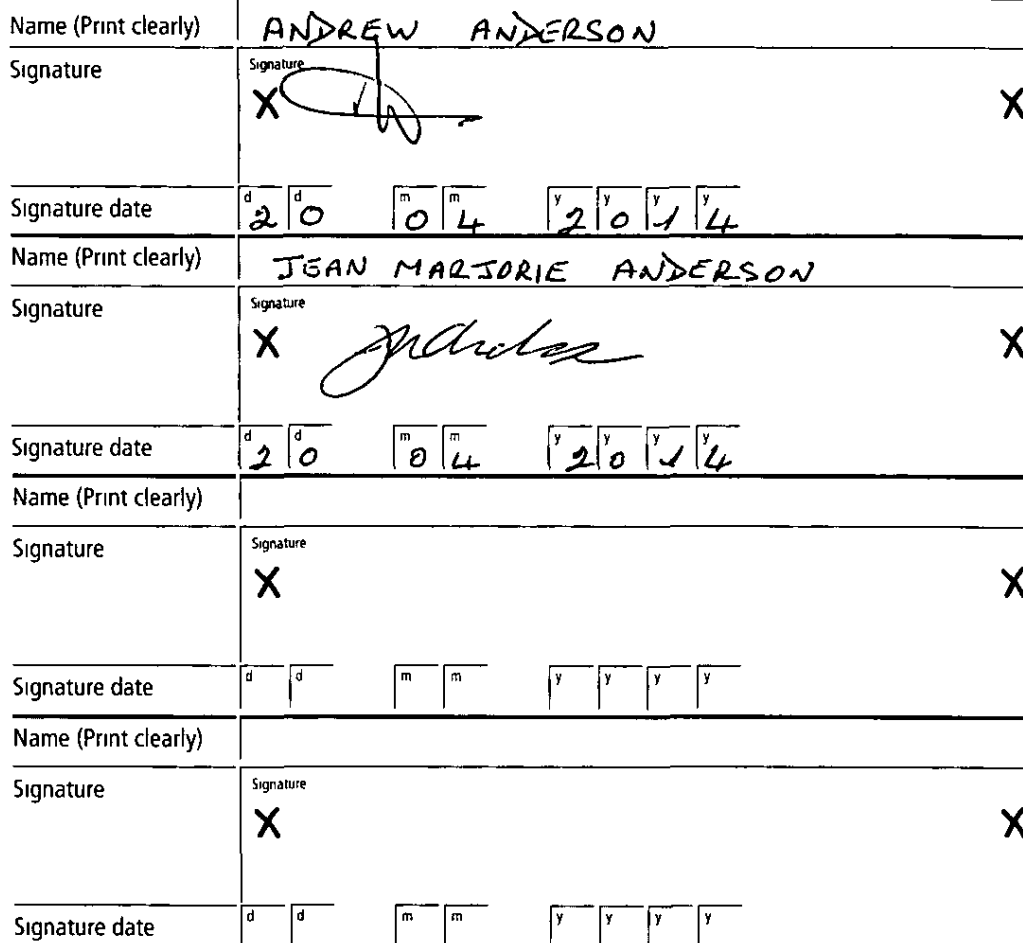 Name (Print clearly) ANDREW ANDERSON
Signature Signature
X X
Signature date d 2 d 0 m 0 m 4 y 2 y 0 y 1 y 4
Name (Print clearly) JEAN MARJORIE ANDERSON
Signature Signature
X X
Signature date d 2 d 0 m 0 m 4 y 2 y 0 y 1 y 4
Name (Print clearly)
Signature Signature
X X
Signature date d d m m y y y y
Name (Print clearly)
Signature Signature
X X
Signature date d d m m y y y y